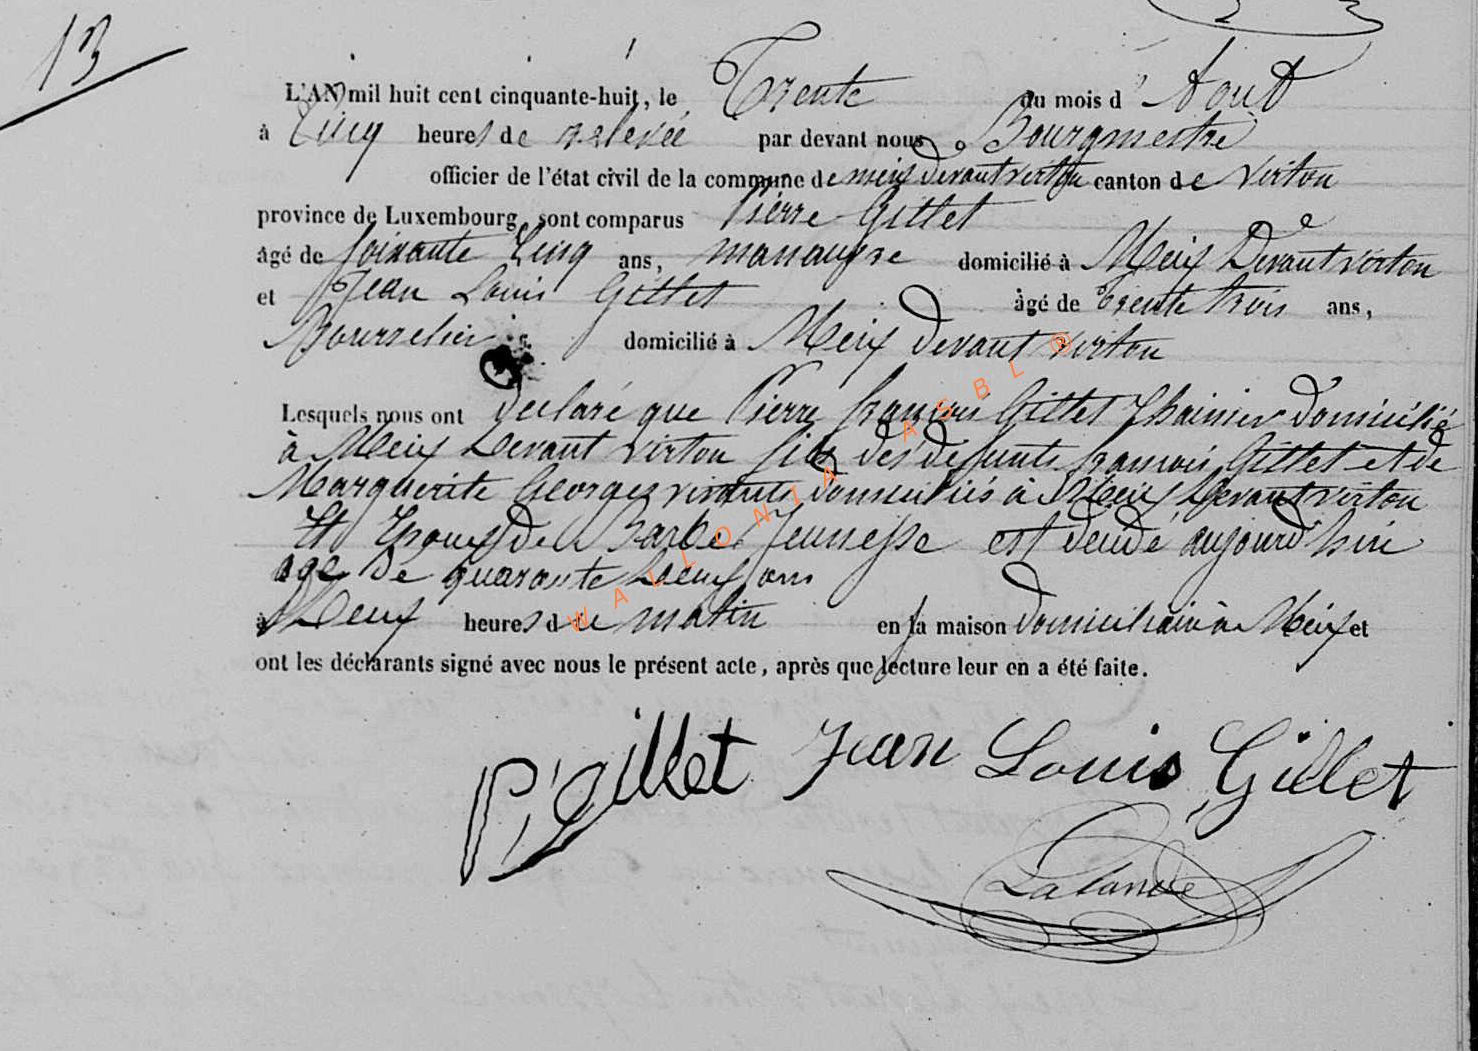 13
L'AN mil huit cent cinquante-huit, le Trente du mois d' Aout
à Cinq heures de relevée par devant nous Bourgmestre
officier de l'état civil de la commune de meix devant virton canton de virton
province de Luxembourg, sont comparus Pierre Gillet
âgé de soixante Cinq ans, manœuvre domicilié à Meix Devant virton
et Jean Louis Gillet âgé de Trente trois ans,
Bourrelier domicilié à Meix devant virton
Lesquels nous ont déclaré que Pierre françois Gillet domicilié
à Meix Devant virton fils des défunts françois Gillet et de
Marguerite Georges domiciliés à Meix Devant virton
Et Epoux de Barbe Jeunesse est décédé aujourd'hui
age de quarante neuf ans
à Neuf heures du matin en la maison à Meix et
ont les déclarants signé avec nous le présent acte, après que lecture leur en a été faite.
P. Gillet Jean Louis Gillet
Lalande
WALLONIA ASBL ®